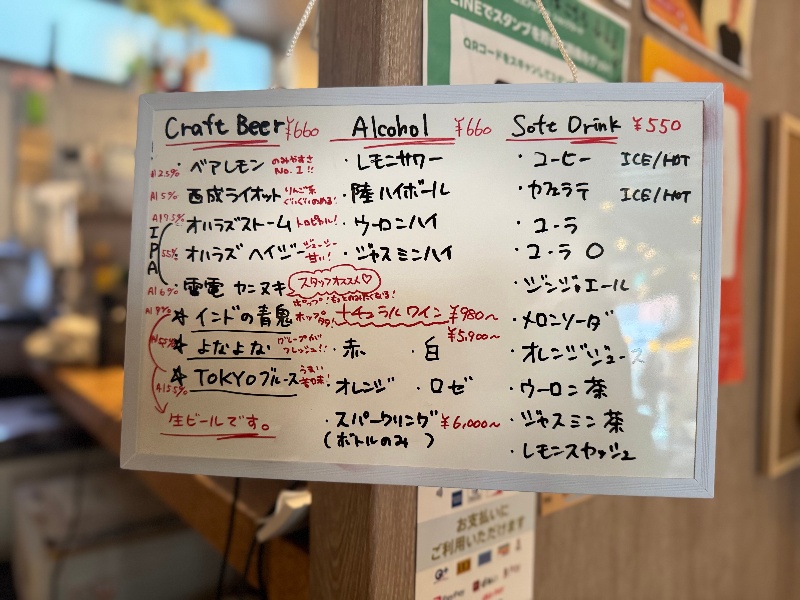 LINEでスタンプを
QRコードをスキャンして
Craft Beer ¥660
Al 2.5% ・ベアレモン のみやすさ No.1!!
Al 5% 西成ライオット りんご系 ぐいぐいのめる!
オハラズストーム トロピカル!
IPA
5.5% オハラズ ヘイジー ジューシー 甘い!
Al 6% 雷電 カンヌキ スタッフオススメ♡
Al 9% ☆ インドの青鬼 ホップ
☆ よなよな フレッシュ!!
Al 5.5% ☆ TOKYOブルース うまい 苦味!
生ビールです。
Alcohol ¥660
・レモンサワー
・陸ハイボール
・ウーロンハイ
・ジャスミンハイ
ナチュラルワイン ¥980〜
¥5,900〜
・赤 ・白
・オレンジ ・ロゼ
・スパークリング ¥6,000〜
(ボトルのみ)
Soft Drink ¥550
・コーヒー ICE/HOT
・カフェラテ ICE/HOT
・コーラ
・コーラ 0
・ジンジャエール
・メロンソーダ
・オレンジジュース
・ウーロン茶
・ジャスミン茶
・レモンスカッシュ
お支払いに
ご利用いただけます
PayPay